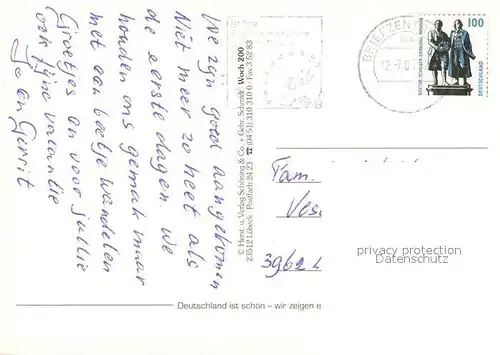 We zijn goed aangekomen
Niet meer zo heet als
de eerste dagen. We
houden ons gemak maar
met een beetje wandelen
Groetjes en voor jullie
ook fijne vakantie
Je en Gerrit
© Herst. u. Verlag Schöning & Co. + Gebr. Schmidt · Woch 200
23512 Lübeck · Postfach 24 23 · ☎ (04 51) 310 310 0 / Fax 3 52 83
BRIEFZEN
12.-7.0
100
DEUTSCHLAND
GOETHE-SCHILLER-DENKMAL WEIMAR
Fam.
Ves
3962 L
privacy protection
Datenschutz
Deutschland ist schön – wir zeigen e